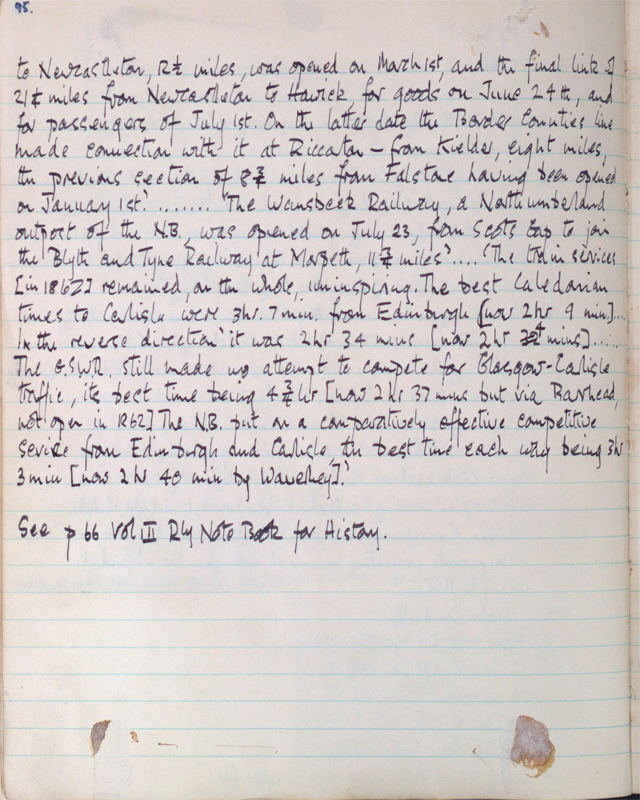 95.
to Newcastleton, 12½ miles, was opened on March 1st, and the final link of
21¼ miles from Newcastleton to Hawick, for goods on June 24th, and
for passengers of July 1st. On the latter date the Border Counties line
made connection with it at Riccarton – from Kielder, eight miles,
the previous section of 8¾ miles from Falstone having been opened
on January 1st.' ........ 'The Wansbeck Railway, a Northumberland
outport of the N.B., was opened on July 23, from Scots Gap to join
the Blyth and Tyne Railway at Morpeth, 11¾ miles'.... 'The train services
[in 1862] remained, on the whole, uninspiring. The best Caledonian
times to Carlisle were 3hr. 7min. from Edinburgh [now 2hr 9 min]...
In the reverse direction it was 2hr 34 mins [now 2hr 4 mins].....
The G.S.W.R. still made no attempt to compete for Glasgow-Carlisle
traffic, its best time being 4¾hr [now 2hr 37 mins but via Barrhead,
not open in 1862] The N.B. put on a comparatively effective competitive
service from Edinburgh and Carlisle, the best time each way being 3hr
3min [now 2hr 40 min by Waverley].'
See p 66 Vol III Rly Note Book for History.